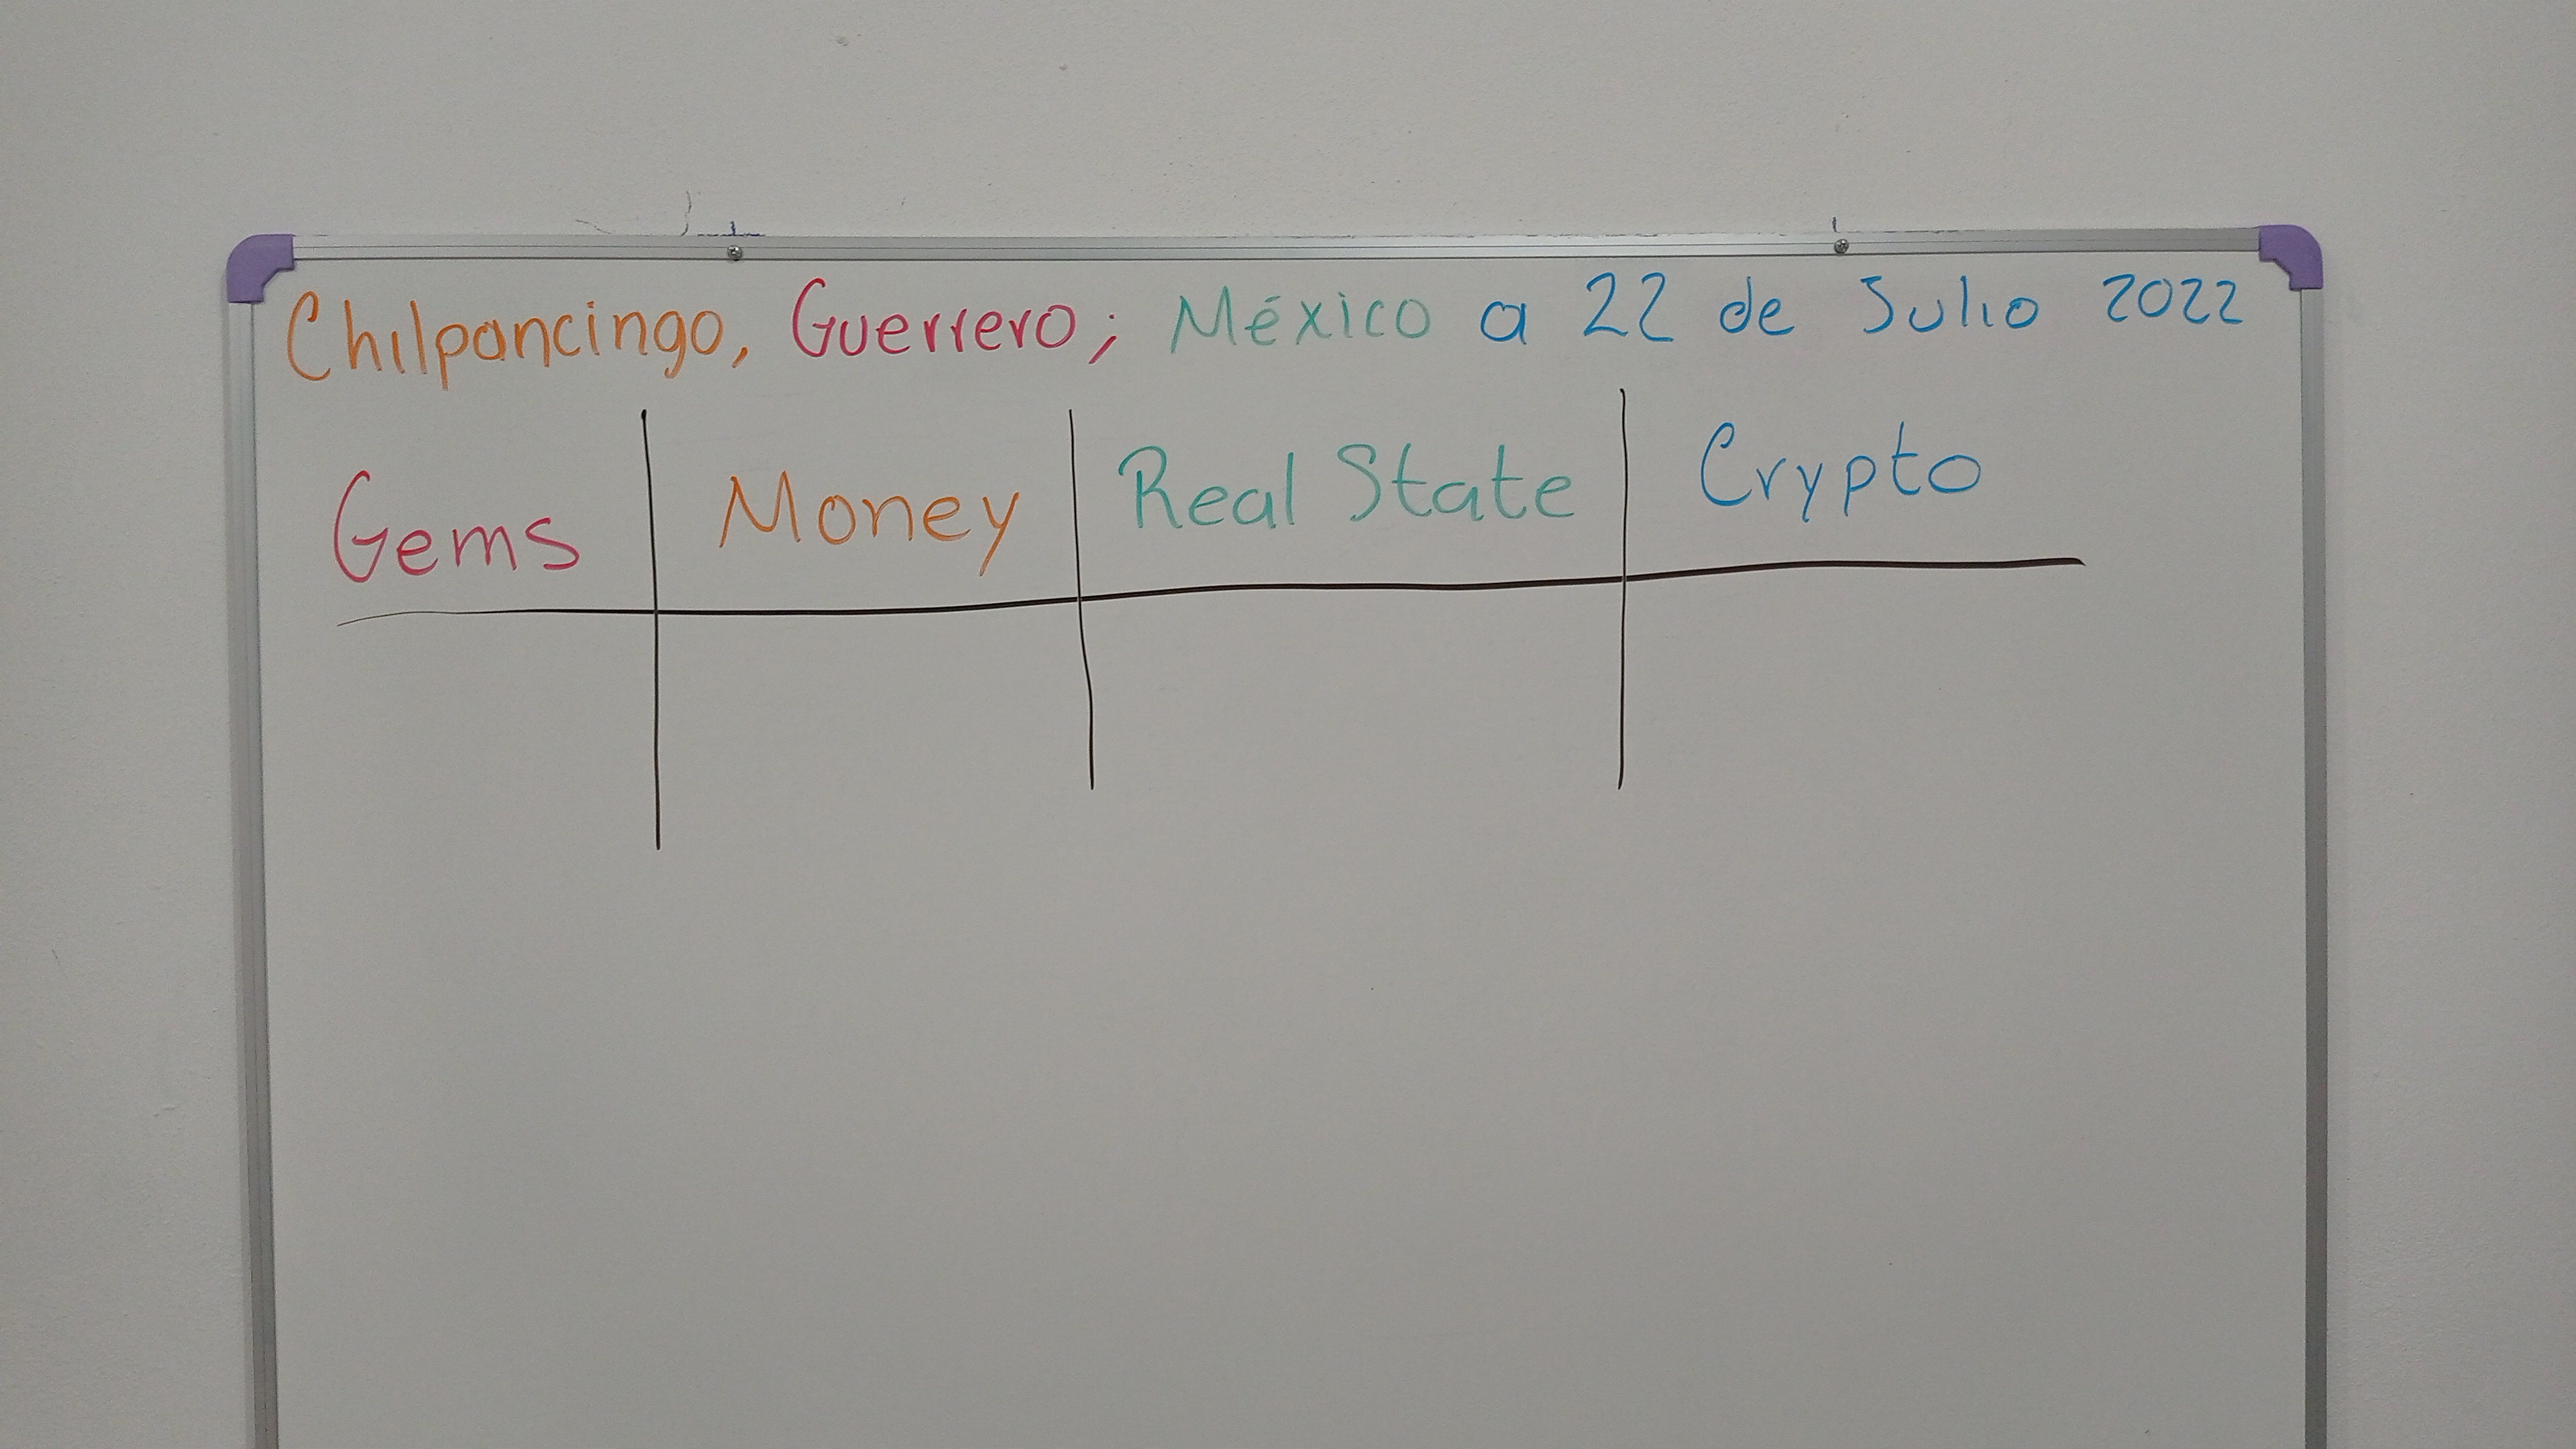 Chilpancingo, Guerrero; México a 22 de Julio 2022
Gems Money Real State Crypto